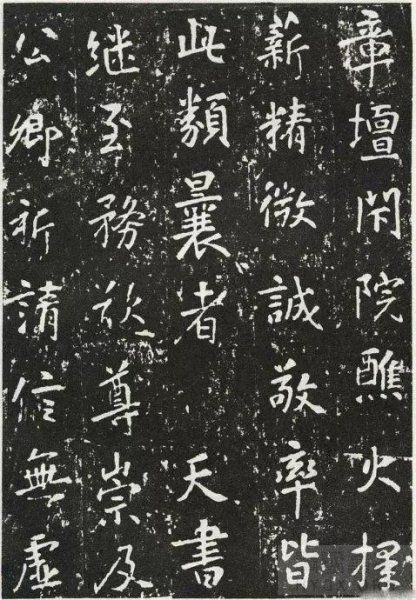 章壇院醮火採
薪精微誠敬率皆
此類曩者 天書
繼至務欲尊崇及
公卿祈請信無虛